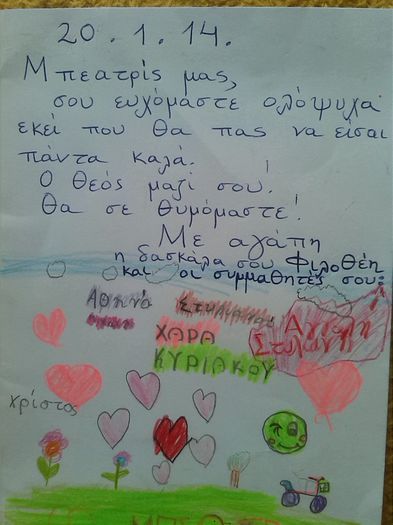 20.1.14.
Μπεατρίς μας,
σου ευχόμαστε ολόψυχα
εκεί που θα πας να είσαι
πάντα καλά.
Ο Θεός μαζί σου!
Θα σε θυμόμαστε!
Με αγάπη
η δασκάλα σου Φιλοθέη
και οι συμμαθητές σου:
Αθηνά
ΧΑΡΑ
ΚΥΡΙΑΚΟΥ
Χρίστος